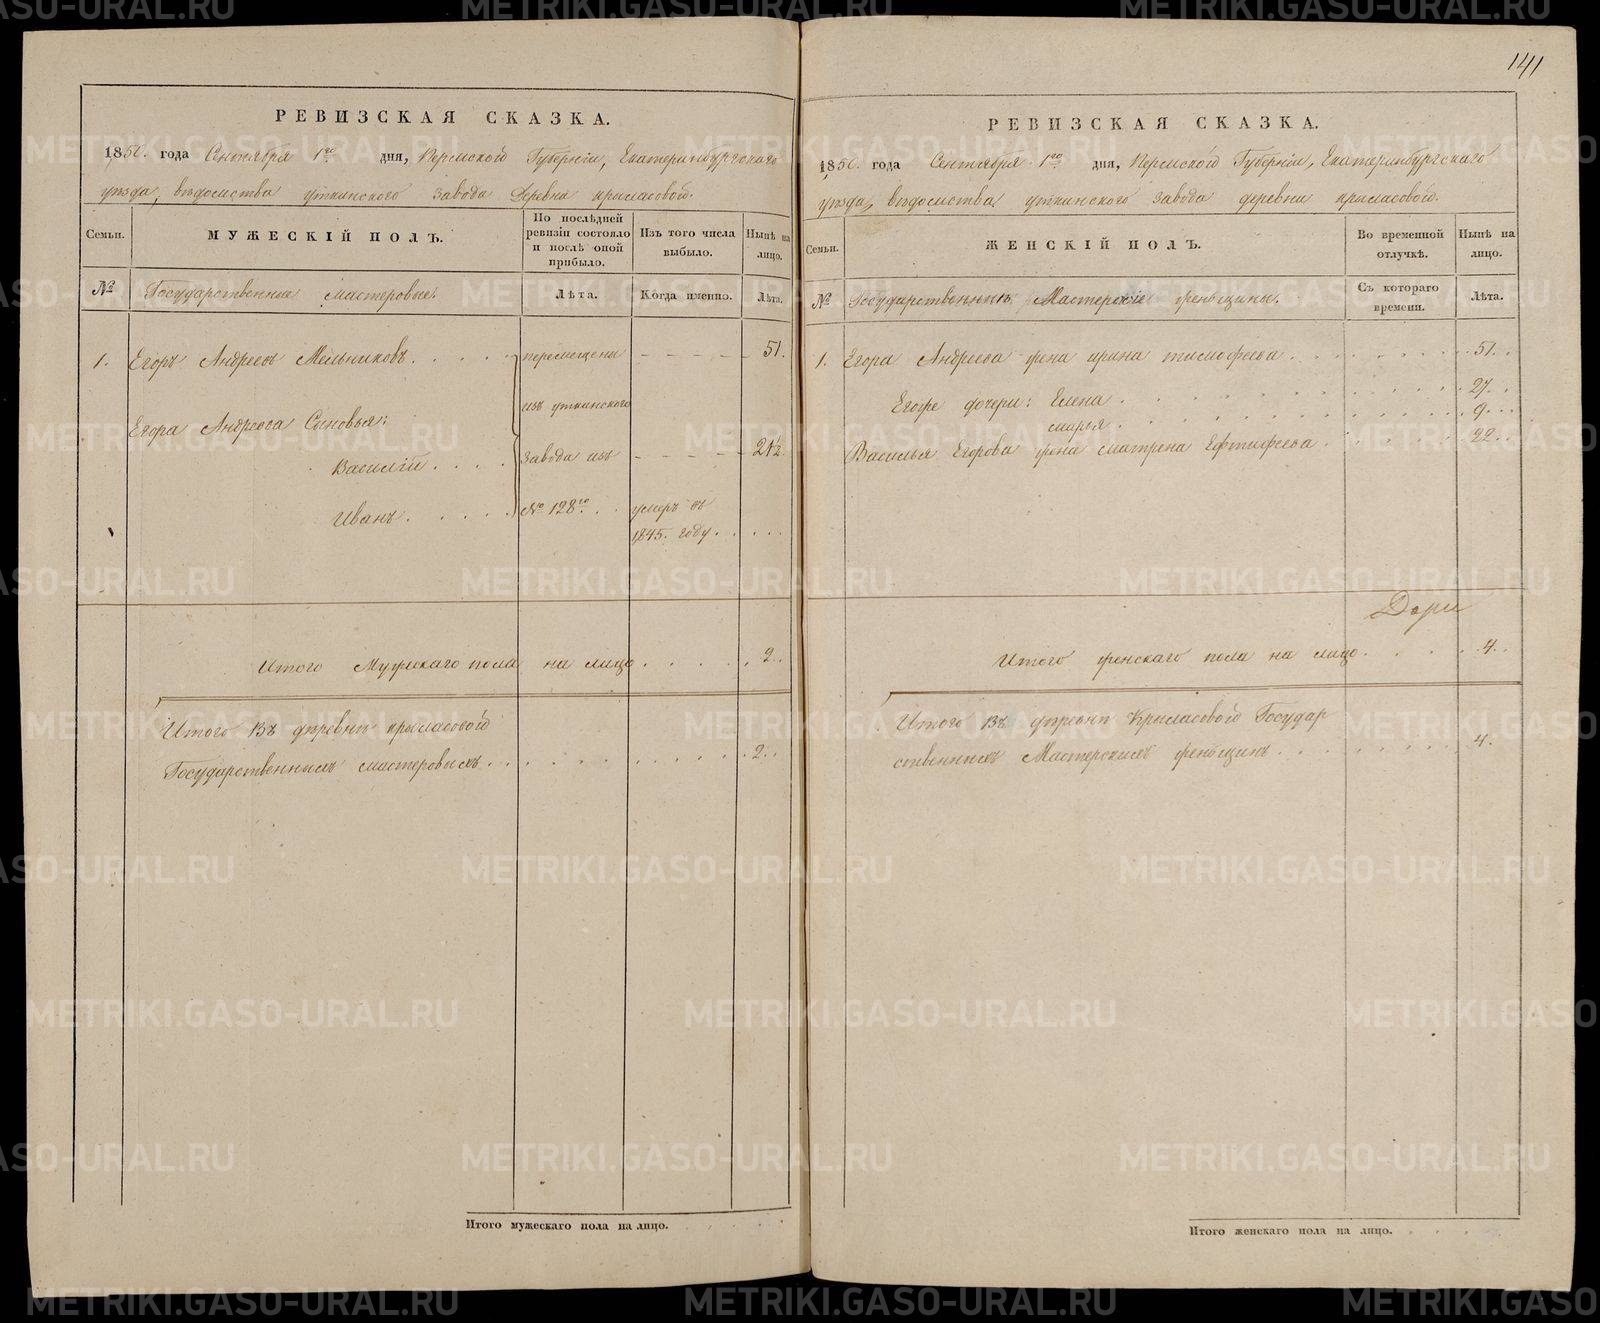 141
РЕВИЗСКАЯ СКАЗКА.
1850. года Сентября 1го дня, Пермской Губерніи, Екатеринбургскаго
уѣзда, вѣдомства уткинскаго завода Деревни крыласовой.
Семьи.
МУЖЕСКІЙ ПОЛЪ.
По послѣдней ревизіи состояло и послѣ оной прибыло.
Изъ того числа выбыло.
Нынѣ на лицо.
№
Государственные мастеровые.
Лѣта.
Когда именно.
Лѣта.
1. Егоръ Андреевъ Мельниковъ. . . . . перемещены – – – – – 51.
изъ уткинского
Егора Андреева Сыновья:
Василій . . . . завода изъ – – – – – 21½
Иванъ . . . . . № 128го. . умеръ въ
1845. году. . . . .
Итого Мужескаго пола на лицо . . . . . 2. .
Итого Въ деревнѣ крыласовой
Государственныхъ мастеровыхъ. . . . . . . . . . . . 2. .
Итого мужескаго пола на лицо.
РЕВИЗСКАЯ СКАЗКА.
1850. года Сентября 1го дня, Пермской Губерніи, Екатеринбургскаго
уѣзда, вѣдомства уткинского завода деревни крыласовой.
Семьи.
ЖЕНСКІЙ ПОЛЪ.
Во временной отлучкѣ.
Нынѣ на лицо.
№
Государственныхъ Мастерскіе женьщины.
Съ котораго времени.
Лѣта.
1. Егора Андреева жена ирина тимофеева . . . . . . . . 51. .
Егоже дочери: Елена . . . . . . . . . 27. .
марья . . . . . . . . . 9. . .
Василья Егорова жена матрена Ефтифеева . . . . . . 22. .
Итого женскаго пола на лицо. . . . . 4. .
Итого Въ деревнѣ Крыласовой Государ
ственныхъ Мастерскихъ женьщинъ . . . . . . . . . 4.
Итого женскаго пола на лицо.
METRIKI.GASO-URAL.RU